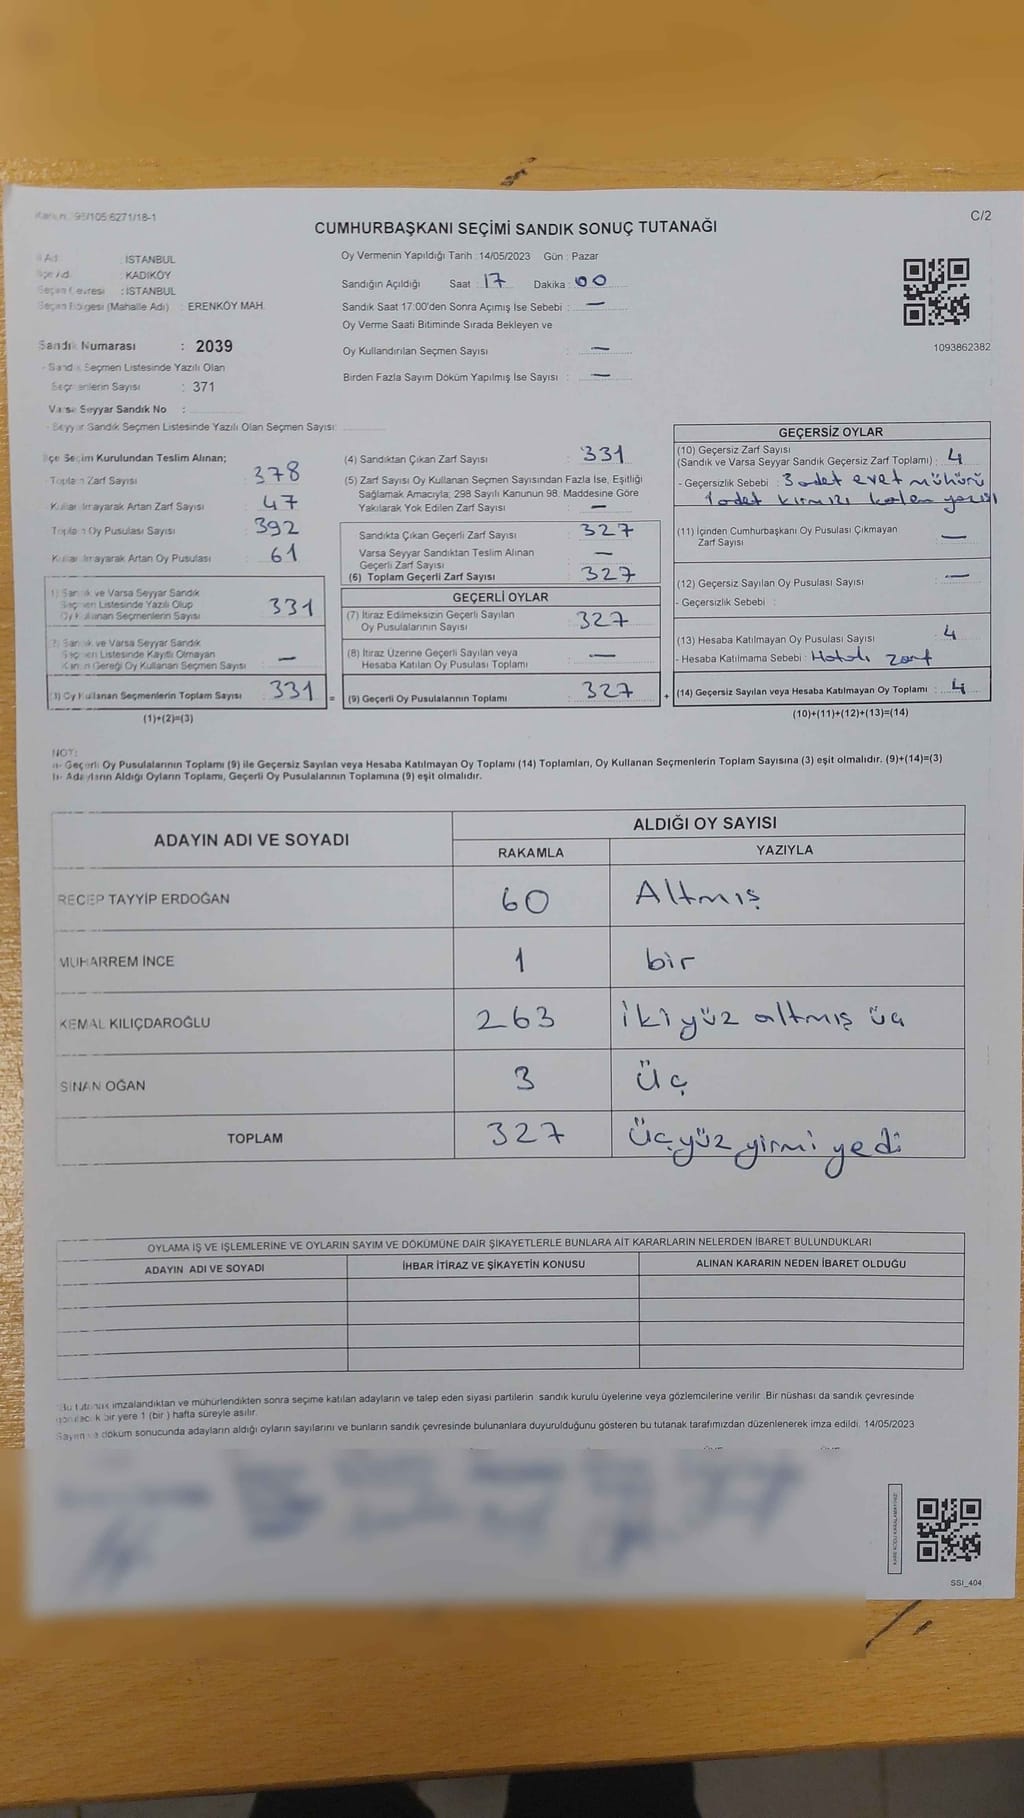 Kanun: 95/105:6271/18-1
C/2
CUMHURBAŞKANI SEÇİMİ SANDIK SONUÇ TUTANAĞI
İl Adı : İSTANBUL
İlçe Adı : KADIKÖY
Seçim Çevresi : İSTANBUL
Seçim Bölgesi (Mahalle Adı) : ERENKÖY MAH.
Sandık Numarası : 2039
- Sandık Seçmen Listesinde Yazılı Olan
Seçmenlerin Sayısı : 371
Varsa Seyyar Sandık No :
- Seyyar Sandık Seçmen Listesinde Yazılı Olan Seçmen Sayısı:
Oy Vermenin Yapıldığı Tarih : 14/05/2023 Gün : Pazar
Sandığın Açıldığı Saat : 17 Dakika : 00
Sandık Saat 17.00'den Sonra Açımış İse Sebebi : —
Oy Verme Saati Bitiminde Sırada Bekleyen ve
Oy Kullandırılan Seçmen Sayısı : —
Birden Fazla Sayım Döküm Yapılmış İse Sayısı : —
1093862382
İlçe Seçim Kurulundan Teslim Alınan;
Toplam Zarf Sayısı : 378
Kullanılmayarak Artan Zarf Sayısı : 47
Toplam Oy Pusulası Sayısı : 392
Kullanılmayarak Artan Oy Pusulası : 61
(1) Sandık ve Varsa Seyyar Sandık
Seçmen Listesinde Yazılı Olup
Oy Kullanan Seçmenlerin Sayısı : 331
(2) Sandık ve Varsa Seyyar Sandık
Seçmen Listesinde Kayıtlı Olmayan
Kanun Gereği Oy Kullanan Seçmen Sayısı : —
(3) Oy Kullanan Seçmenlerin Toplam Sayısı : 331
(1)+(2)=(3)
(4) Sandıktan Çıkan Zarf Sayısı : 331
(5) Zarf Sayısı Oy Kullanan Seçmen Sayısından Fazla İse, Eşitliği
Sağlamak Amacıyla; 298 Sayılı Kanunun 98. Maddesine Göre
Yakılarak Yok Edilen Zarf Sayısı : —
Sandıkta Çıkan Geçerli Zarf Sayısı : 327
Varsa Seyyar Sandıktan Teslim Alınan
Geçerli Zarf Sayısı : —
(6) Toplam Geçerli Zarf Sayısı : 327
GEÇERLİ OYLAR
(7) İtiraz Edilmeksizin Geçerli Sayılan
Oy Pusulalarının Sayısı : 327
(8) İtiraz Üzerine Geçerli Sayılan veya
Hesaba Katılan Oy Pusulası Toplamı : —
= (9) Geçerli Oy Pusulalarının Toplamı : 327 +
GEÇERSİZ OYLAR
(10) Geçersiz Zarf Sayısı
(Sandık ve Varsa Seyyar Sandık Geçersiz Zarf Toplamı) : 4
- Geçersizlik Sebebi : 3 adet evet mühürü
1 adet kırmızı kalem yazısı
(11) İçinden Cumhurbaşkanı Oy Pusulası Çıkmayan
Zarf Sayısı : —
(12) Geçersiz Sayılan Oy Pusulası Sayısı : —
- Geçersizlik Sebebi :
(13) Hesaba Katılmayan Oy Pusulası Sayısı : 4
- Hesaba Katılmama Sebebi : Hatalı zarf
(14) Geçersiz Sayılan veya Hesaba Katılmayan Oy Toplamı : 4
(10)+(11)+(12)+(13)=(14)
NOT:
a- Geçerli Oy Pusulalarının Toplamı (9) ile Geçersiz Sayılan veya Hesaba Katılmayan Oy Toplamı (14) Toplamları, Oy Kullanan Seçmenlerin Toplam Sayısına (3) eşit olmalıdır. (9)+(14)=(3)
b- Adayların Aldığı Oyların Toplamı, Geçerli Oy Pusulalarının Toplamına (9) eşit olmalıdır.
ADAYIN ADI VE SOYADI ALDIĞI OY SAYISI
RAKAMLA YAZIYLA
RECEP TAYYİP ERDOĞAN 60 Altmış
MUHARREM İNCE 1 bir
KEMAL KILIÇDAROĞLU 263 iki yüz altmış üç
SİNAN OĞAN 3 Üç
TOPLAM 327 Üçyüz yirmi yedi
OYLAMA İŞ VE İŞLEMLERİNE VE OYLARIN SAYIM VE DÖKÜMÜNE DAİR ŞİKAYETLERLE BUNLARA AİT KARARLARIN NELERDEN İBARET BULUNDUKLARI
ADAYIN ADI VE SOYADI İHBAR İTİRAZ VE ŞİKAYETİN KONUSU ALINAN KARARIN NEDEN İBARET OLDUĞU
Bu tutanak imzalandıktan ve mühürlendikten sonra seçime katılan adayların ve talep eden siyasi partilerin sandık kurulu üyelerine veya gözlemcilerine verilir. Bir nüshası da sandık çevresinde
görülecek bir yere 1 (bir) hafta süreyle asılır.
Sayım ve döküm sonucunda adayların aldığı oyların sayılarını ve bunların sandık çevresinde bulunanlara duyurulduğunu gösteren bu tutanak tarafımızdan düzenlenerek imza edildi. 14/05/2023
KARE KODU KARALAMAYINIZ!
SSI_404